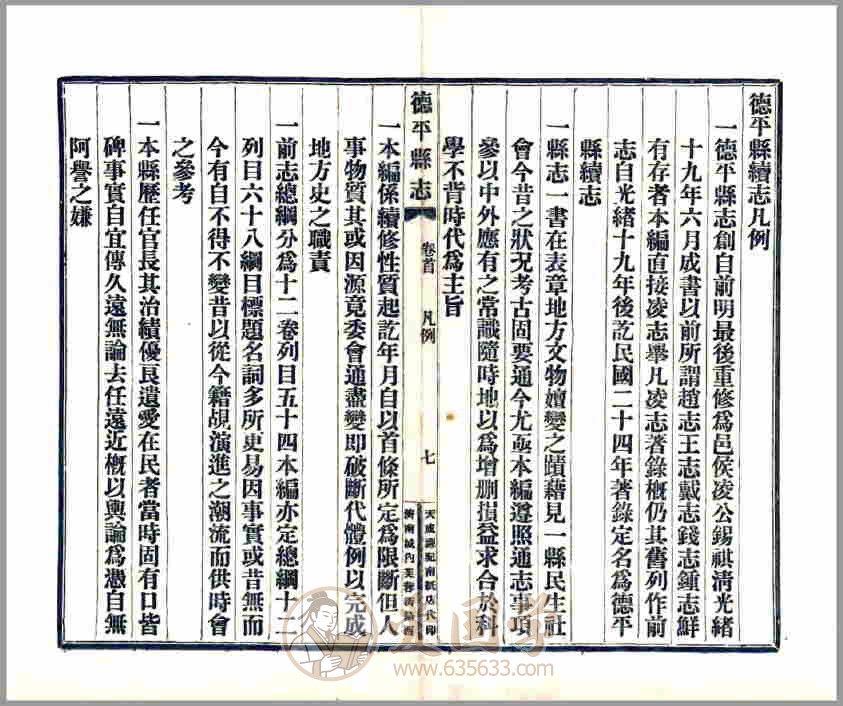 德平縣續志凡例
一德平縣志創自前明最後重修爲邑侯凌公錫祺淸光緒
十九年六月成書以前所謂趙志王志戴志錢志鍾志鮮
有存者本編直接凌志舉凡凌志著錄槪仍其舊列作前
志自光緒十九年後訖民國二十四年著錄定名爲德平
縣續志
一縣志一書在表章地方文物嬗變之蹟藉見一縣民生社
會今昔之狀况考古固要通今尤亟本編遵照通志事項
參以中外應有之常識隨時地以爲增删損益求合於科
學不背時代爲主旨
德平縣志
卷首
凡例
七
天成諭記南紙店代印
濟南城內芙蓉街路西
一本編係續修性質起訖年月自以首條所定爲限斷但人
事物質其或因源竟委會通盡變卽破斷代體例以完成
地方史之職責
一前志總綱分爲十二卷列目五十四本編亦定總綱十二
列目六十八綱目標題名詞多所更易因事實或昔無而
今有自不得不變昔以從今籍覘演進之潮流而供時會
之參考
一本縣歷任官長其治績優良遺愛在民者當時固有口皆
碑事實自宜傳久遠無論去任遠近槪以輿論爲憑自無
阿譽之嫌
國學
www.635633.com